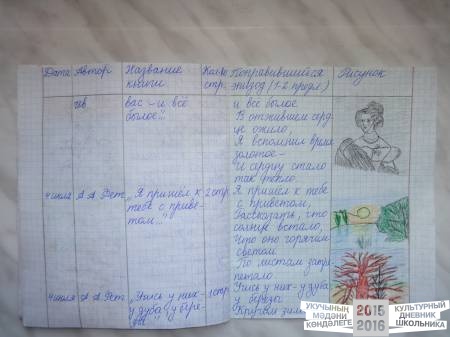 Дата Автор Название книги Кол-во стр. Понравившийся эпизод (1-2 предл.) Рисунок
чев
вас - и всё
былое..."
и все былое
В отжившем серд-
це ожило,
Я вспомнил время
золотое -
И сердцу стало
так тепло.
4 июля А. А. Фет „Я пришёл к
тебе с приве-
том..."
2 стр.
Я пришёл к тебе
с приветом,
Рассказать, что
солнце встало,
Что оно горячим
светом
По листам затре-
петало
4 июля А. А. Фет „Учись у них -
у дуба, у бере-
зы."
1 стр.
Учись у них - у дуба,
у березы.
Кругом зима
УКУЧЫНЫҢ
МӘДӘНИ
КӨНДӘЛЕГЕ
2015
2016
КУЛЬТУРНЫЙ
ДНЕВНИК
ШКОЛЬНИКА